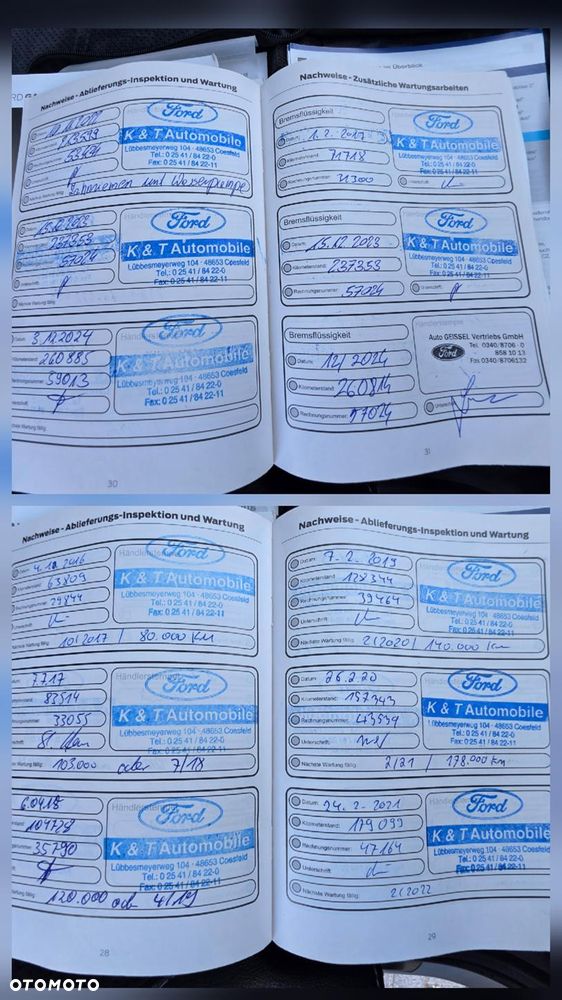 Nachweise - Ablieferungs-Inspektion und Wartung
10.11.2022
213539
53194
Zahnriemen und Wasserpumpe
Ford
K & T Automobile
Lübbesmeyerweg 104 · 48653 Coesfeld
Tel.: 0 25 41 / 84 22-0
Fax: 0 25 41 / 84 22-11
15.12.2023
237353
57024
Nächste Wartung fällig:
Ford
K & T Automobile
Lübbesmeyerweg 104 · 48653 Coesfeld
Tel.: 0 25 41 / 84 22-0
Fax: 0 25 41 / 84 22-11
Datum: 3.12.2024
260885
Rechnungsnummer: 59013
Nächste Wartung fällig:
Ford
K & T Automobile
Lübbesmeyerweg 104 · 48653 Coesfeld
Tel.: 0 25 41 / 84 22-0
Fax: 0 25 41 / 84 22-11
30
im Überblick
Nachweise - Zusätzliche Wartungsarbeiten
Bremsflüssigkeit
Datum: 1.2.2017
Kilometerstand: 71718
Rechnungsnummer: 31300
Unterschrift:
Ford
K & T Automobile
Lübbesmeyerweg 104 · 48653 Coesfeld
Tel.: 0 25 41 / 84 22-0
Fax: 0 25 41 / 84 22-11
Bremsflüssigkeit
Datum: 15.12.2023
Kilometerstand: 237353
Rechnungsnummer: 57024
Unterschrift:
Ford
K & T Automobile
Lübbesmeyerweg 104 · 48653 Coesfeld
Tel.: 0 25 41 / 84 22-0
Fax: 0 25 41 / 84 22-11
Bremsflüssigkeit
Datum: 12/2024
Kilometerstand: 260814
Rechnungsnummer: 57024
Unterschrift:
Auto GEISSEL Vertriebs GmbH
Ford
Tel. 0340/8706 -0
858 10 13
Fax 0340/8706132
31
Nachweise - Ablieferungs-Inspektion und Wartung
Datum: 4.10.2016
Kilometerstand: 63809
Rechnungsnummer: 29844
Unterschrift:
Nächste Wartung fällig: 10/2017 / 80.000 KM
Händlerstempel
Ford
K & T Automobile
Lübbesmeyerweg 104 · 48653 Coesfeld
Tel.: 0 25 41 / 84 22-0
Fax: 0 25 41 / 84 22-11
7.7.17
83514
33055
Wartung fällig: 103.000 oder 7/18
Händlerstempel
Ford
K & T Automobile
Lübbesmeyerweg 104 · 48653 Coesfeld
Tel.: 0 25 41 / 84 22-0
Fax: 0 25 41 / 84 22-11
6.04.18
104728
35790
120.000 oder 4/19
Ford
K & T Automobile
Lübbesmeyerweg 104 · 48653 Coesfeld
Tel.: 0 25 41 / 84 22-0
Fax: 0 25 41 / 84 22-11
28
Nachweise - Ablieferungs-Inspektion und Wartung
Datum: 7.2.2019
Kilometerstand: 128344
Rechnungsnummer: 39464
Unterschrift:
Nächste Wartung fällig: 2/2020 / 140.000 km
Ford
K & T Automobile
Lübbesmeyerweg 104 · 48653 Coesfeld
Tel.: 0 25 41 / 84 22-0
Fax: 0 25 41 / 84 22-11
Datum: 26.2.20
Kilometerstand: 157343
Rechnungsnummer: 43539
Unterschrift:
Nächste Wartung fällig: 2/21 / 178.000 km
Ford
K & T Automobile
Lübbesmeyerweg 104 · 48653 Coesfeld
Tel.: 0 25 41 / 84 22-0
Fax: 0 25 41 / 84 22-11
Datum: 24.2.2021
Kilometerstand: 179099
Rechnungsnummer: 47164
Unterschrift
Nächste Wartung fällig: 2/2022
Ford
K & T Automobile
Lübbesmeyerweg 104 · 48653 Coesfeld
Tel.: 0 25 41 / 84 22-0
Fax: 0 25 41 / 84 22-11
29
OTOMOTO